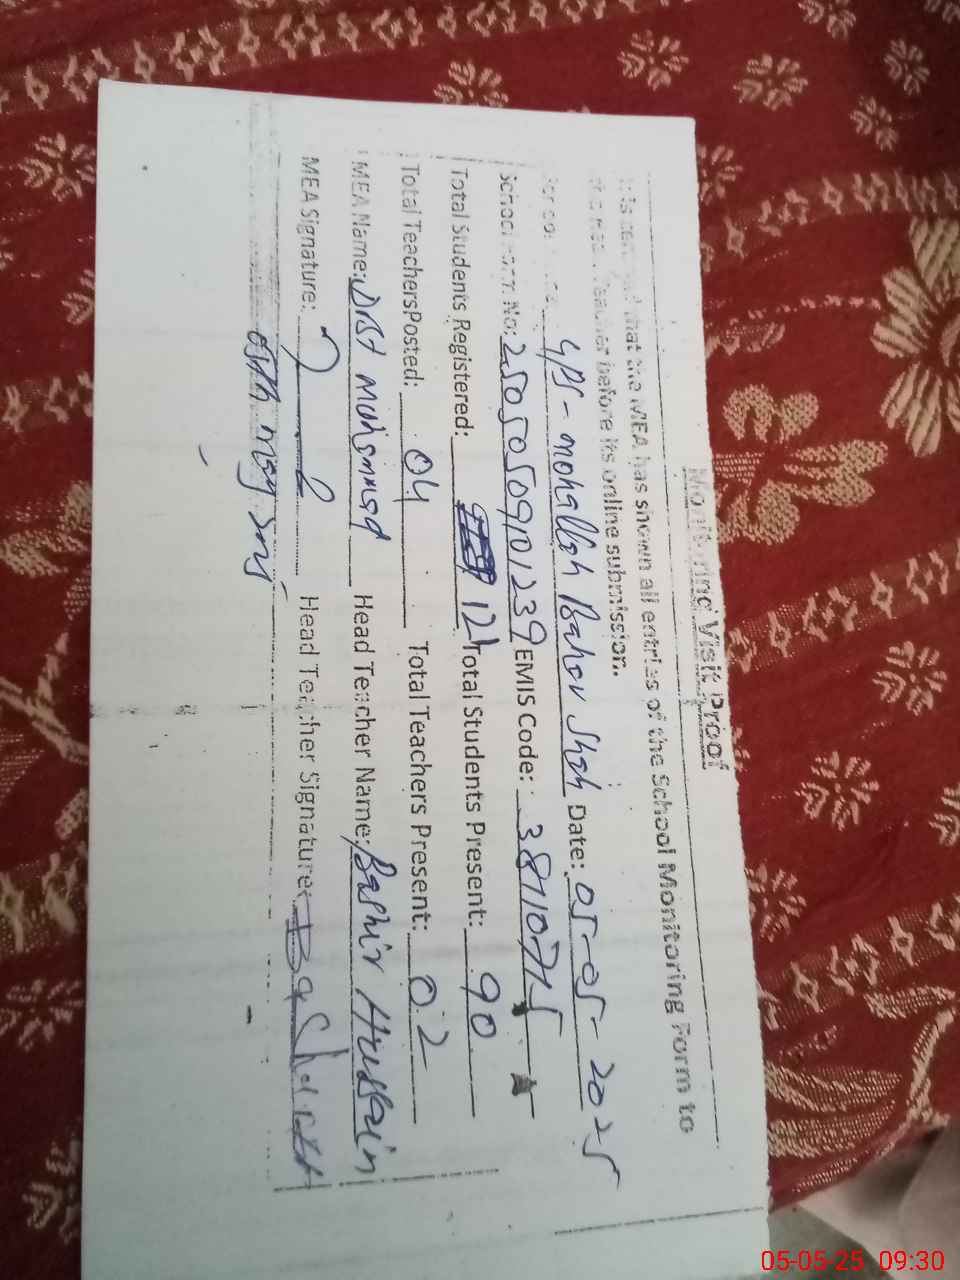 Monitoring Visit Proof
It is certified that the MEA has shown all entries of the School Monitoring Form to
the Head Teacher before its online submission.
GPS - mohallah Bahar Shah Date: 05-05-2025
School Form No: 25050509101239 EMIS Code: 38110715
Total Students Registered: 121 Total Students Present: 90
Total Teachers Posted: 04 Total Teachers Present: 02
MEA Name: Dost mohammad Head Teacher Name: Bashir Hussain
MEA Signature: Head Teacher Signature:
05th may
05-05-25 09:30